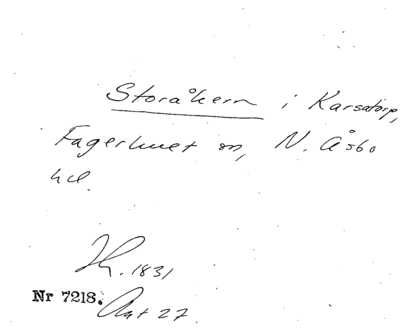 Storåkern i Karsatorp,
Fagerhult sn, N. Åsbo
hd.
1831
Nr 7218. Akt 27